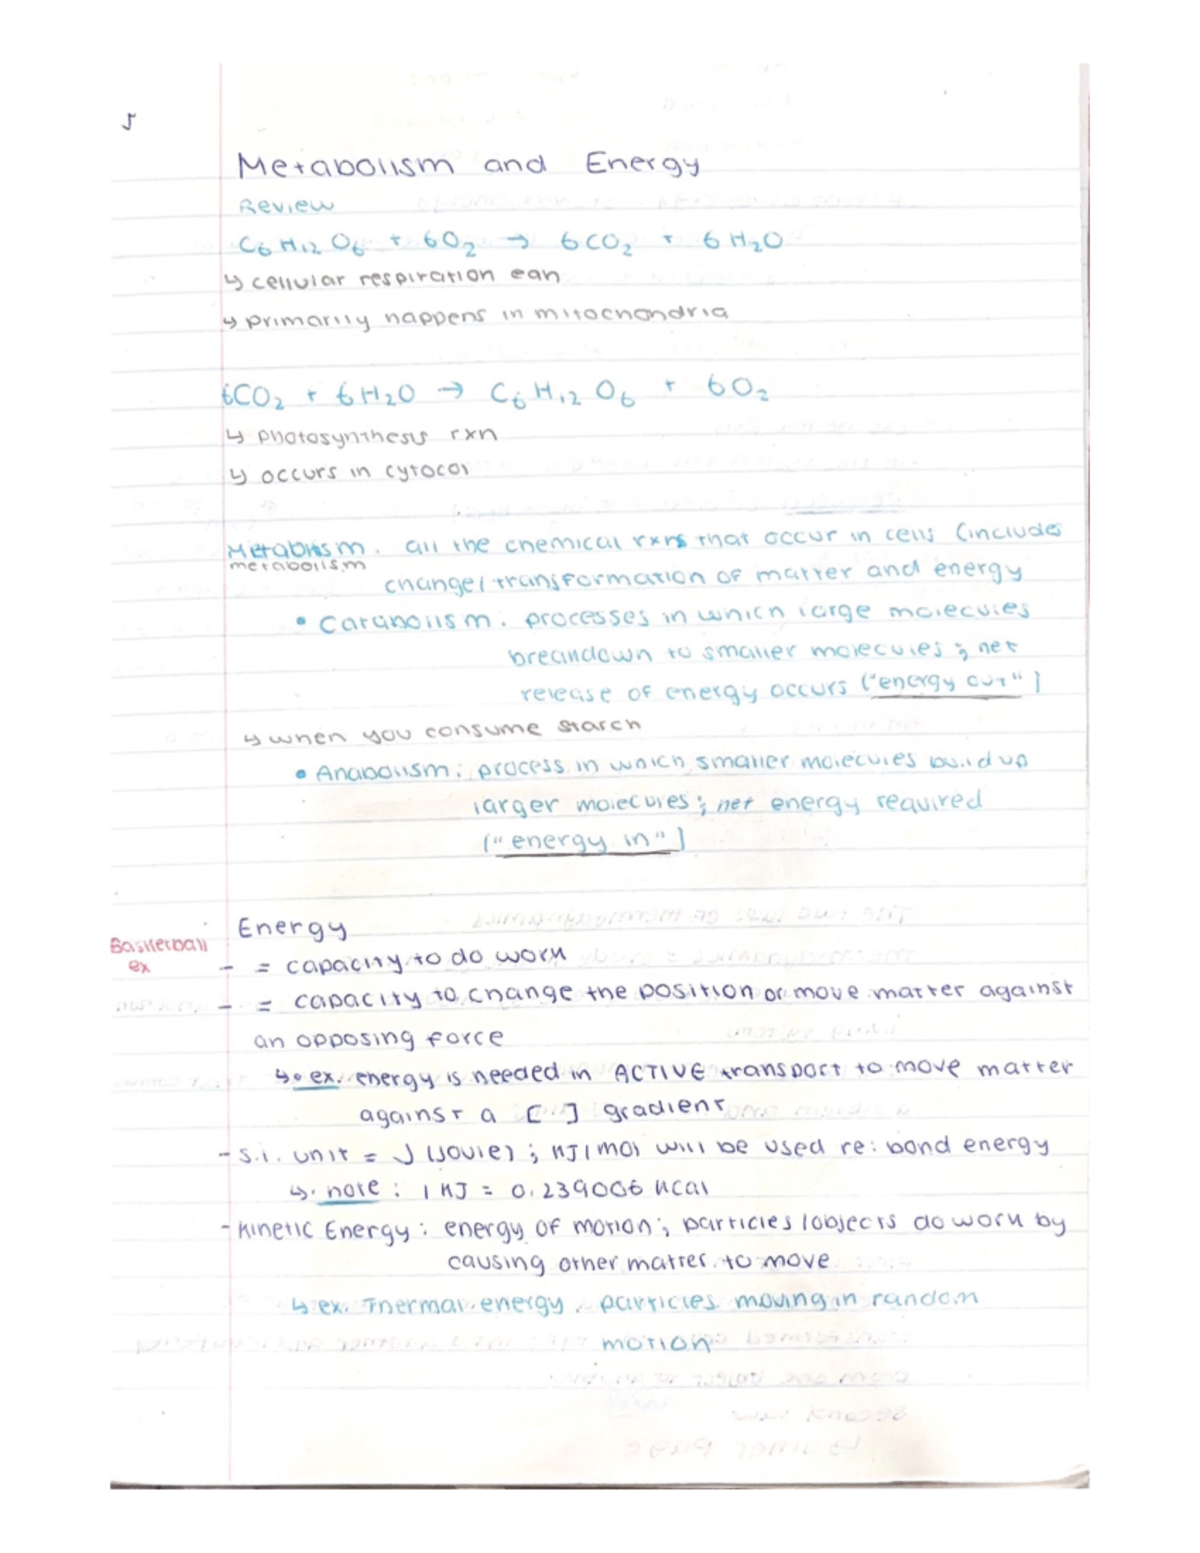 Metabolism and Energy
Review
C6 H12 O6 + 6O2 → 6CO2 + 6H2O
↳ cellular respiration eqn
↳ primarily happens in mitochondria
6CO2 + 6H2O → C6H12O6 + 6O2
↳ photosynthesis rxn
↳ occurs in cytocol
Metabolism. all the chemical rxns that occur in cells (includes
metabolism
change/transformation of matter and energy
• Catabolism: processes in which large molecules
breakdown to smaller molecules; net
release of energy occurs ("energy out")
↳ when you consume starch
• Anabolism: process in which smaller molecules build up
larger molecules; net energy required
("energy in")
Energy
Basketball
ex
- = capacity to do work
- = capacity to change the position or move matter against
an opposing force
↳• ex. energy is needed in ACTIVE transport to move matter
against a [ ] gradient
- s.i. unit = J (Joule); kJ/mol will be used re: bond energy
↳ note: 1 kJ = 0.239006 kcal
- Kinetic Energy: energy of motion; particles/objects do work by
causing other matter to move
↳ ex. Thermal energy. particles moving in random
motion